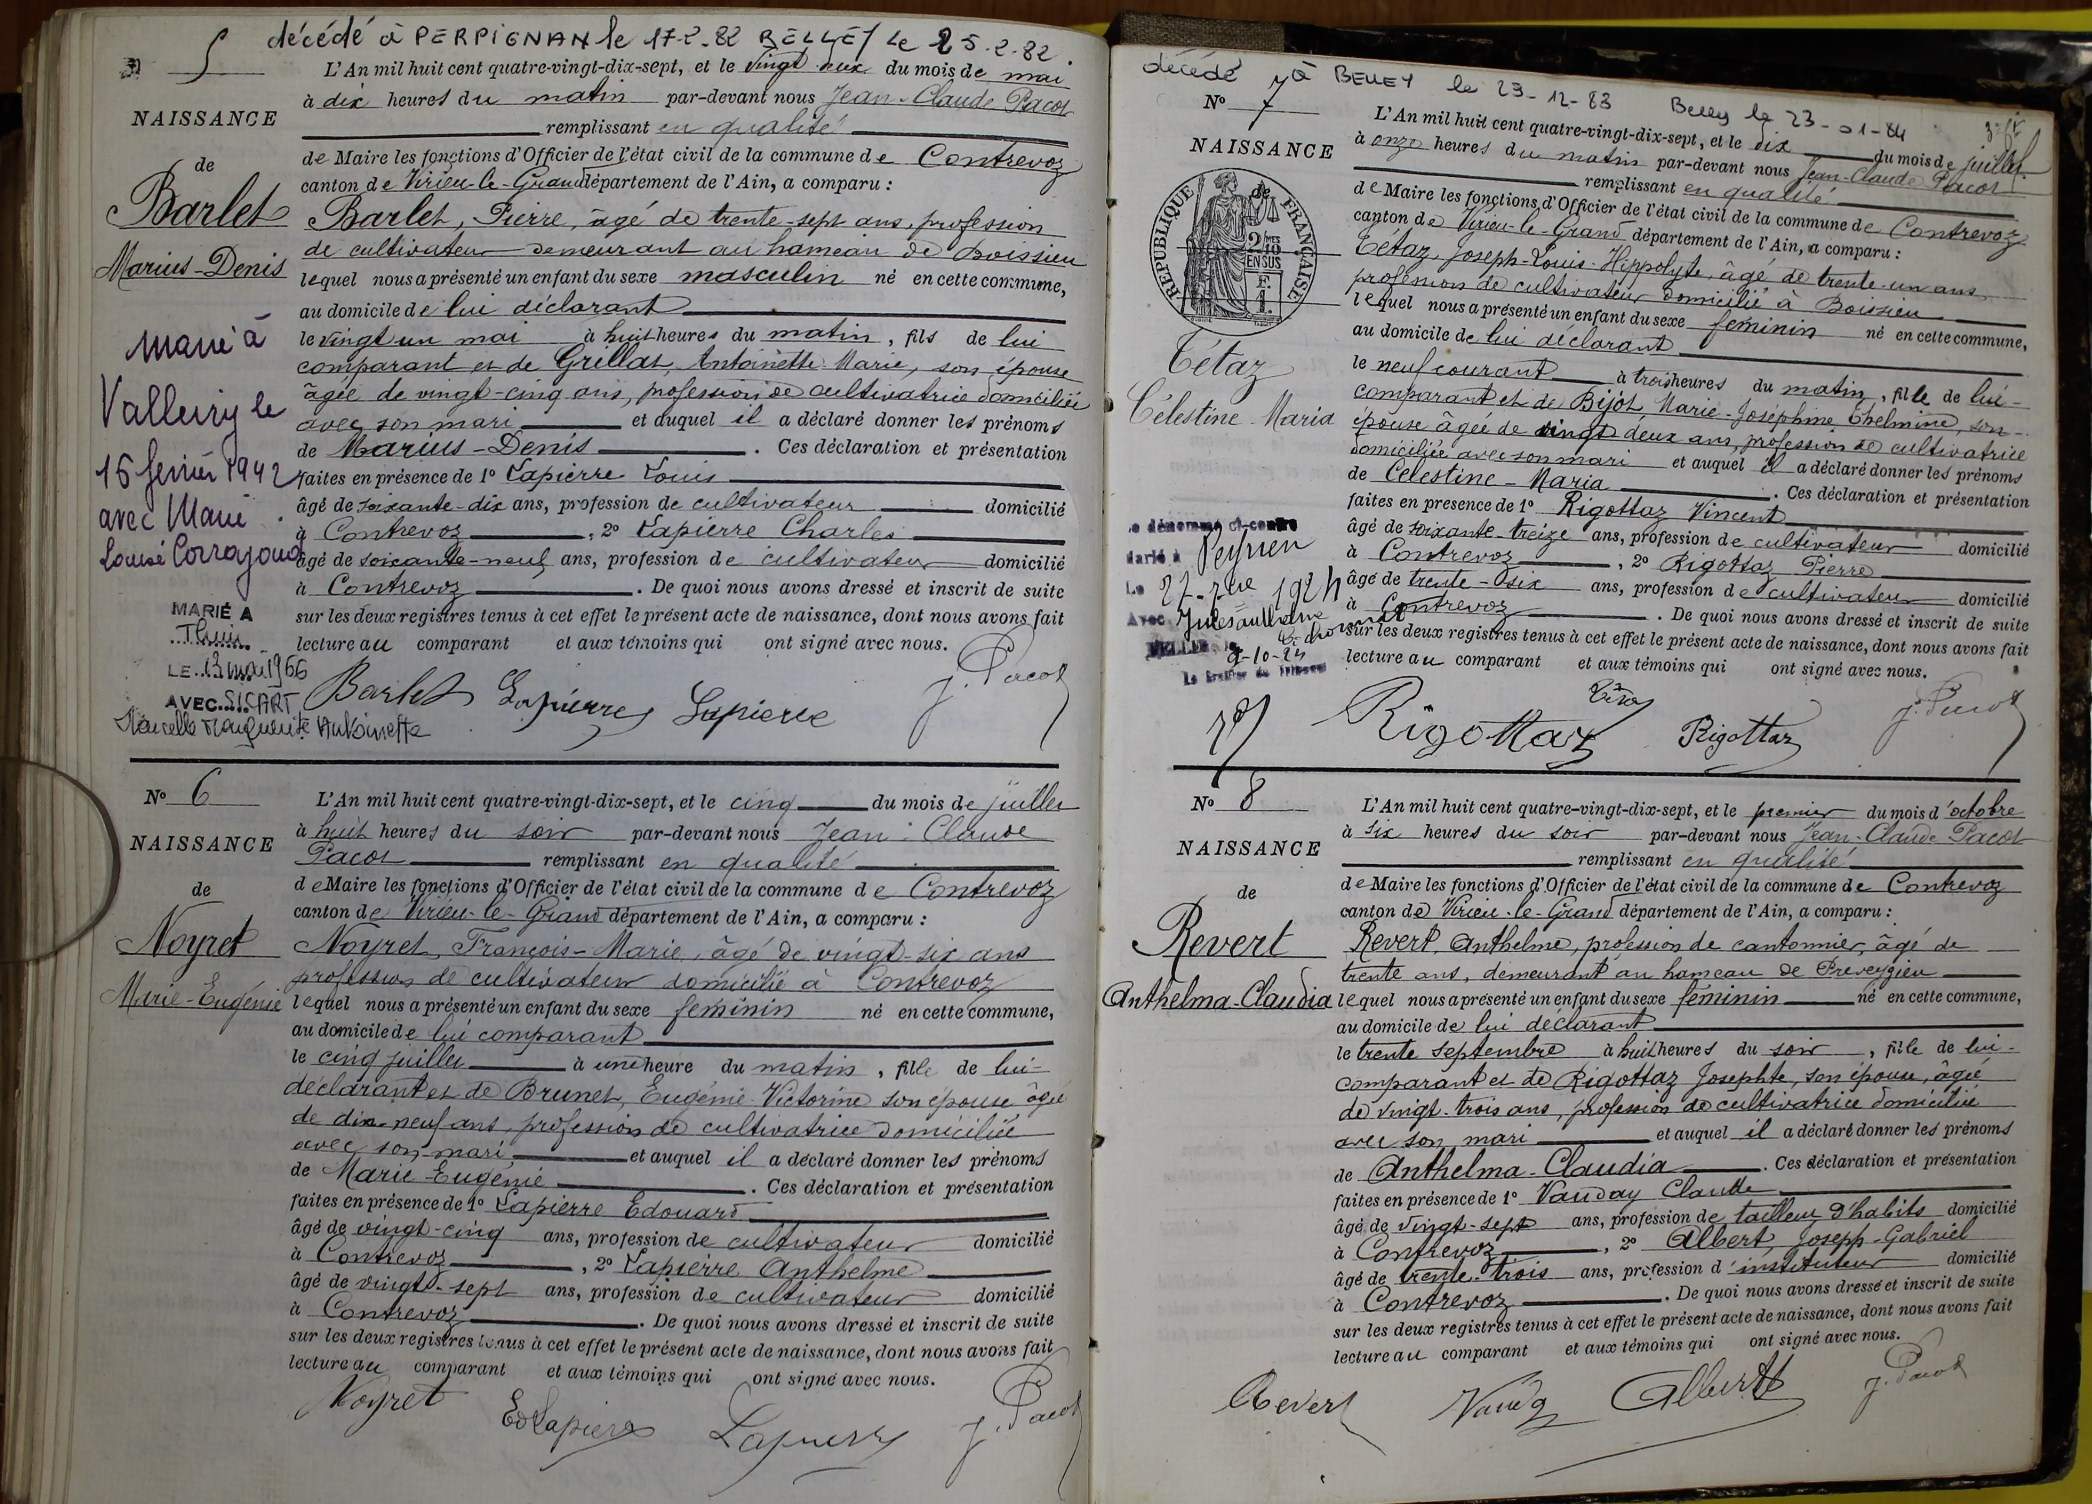 décédé à PERPIGNAN le 17-2-82 BELLEY le 25-2-82
5
L'An mil huit cent quatre-vingt-dix-sept, et le vingt deux du mois de mai
à dix heures du matin par-devant nous Jean-Claude Pacot
NAISSANCE
remplissant en qualité
de Maire les fonctions d'Officier de l'état civil de la commune de Contrevoz
de
canton de Virieu-le-Grand département de l'Ain, a comparu :
Barlet
Barlet, Pierre, âgé de trente-sept ans, profession
de cultivateur demeurant au hameau de Boissieu
Marius-Denis
lequel nous a présenté un enfant du sexe masculin né en cette commune,
au domicile de lui déclarant
le vingt un mai à huit heures du matin, fils de lui
comparant et de Grellat, Antoinette Marie, son épouse
âgée de vingt-cinq ans, profession de cultivatrice domiciliée
avec son mari et auquel il a déclaré donner les prénoms
de Marius-Denis. Ces déclaration et présentation
faites en présence de 1° Lapierre Louis
âgé de soixante-dix ans, profession de cultivateur domicilié
à Contrevoz, 2° Lapierre Charles
âgé de soixante-neuf ans, profession de cultivateur domicilié
à Contrevoz. De quoi nous avons dressé et inscrit de suite
sur les deux registres tenus à cet effet le présent acte de naissance, dont nous avons fait
lecture au comparant et aux témoins qui ont signé avec nous.
Marié à
Valleiry le
15 février 1942
avec Marie
Louise Corrajoud
MARIÉ A
Thuir
LE 13 mai 1966
AVEC SICART
Marcelle Marguerite Antoinette
Barlet Lapierre Lapierre J. Pacot
N° 6
L'An mil huit cent quatre-vingt-dix-sept, et le cinq du mois de juillet
à huit heures du soir par-devant nous Jean-Claude
NAISSANCE
Pacot remplissant en qualité
de Maire les fonctions d'Officier de l'état civil de la commune de Contrevoz
de
canton de Virieu-le-Grand département de l'Ain, a comparu :
Noyret
Noyret, François-Marie, âgé de vingt-six ans
profession de cultivateur domicilié à Contrevoz
Marie-Eugénie
lequel nous a présenté un enfant du sexe féminin né en cette commune,
au domicile de lui comparant
le cinq juillet à une heure du matin, fille de lui-
déclarant et de Brunet, Eugénie Victorine son épouse âgée
de dix-neuf ans, profession de cultivatrice domiciliée
avec son mari et auquel il a déclaré donner les prénoms
de Marie-Eugénie. Ces déclaration et présentation
faites en présence de 1° Lapierre Edouard
âgé de vingt-cinq ans, profession de cultivateur domicilié
à Contrevoz, 2° Lapierre Anthelme
âgé de vingt-sept ans, profession de cultivateur domicilié
à Contrevoz. De quoi nous avons dressé et inscrit de suite
sur les deux registres tenus à cet effet le présent acte de naissance, dont nous avons fait
lecture au comparant et aux témoins qui ont signé avec nous.
Noyret Ed Lapierre Lapierre J. Pacot
décédé à BELLEY le 23-12-83 Belley le 23-01-84
N° 7
L'An mil huit cent quatre-vingt-dix-sept, et le dix du mois de juillet
à onze heures du matin par-devant nous Jean-Claude Pacot
NAISSANCE
remplissant en qualité
de Maire les fonctions d'Officier de l'état civil de la commune de Contrevoz
de
canton de Virieu-le-Grand département de l'Ain, a comparu :
RÉPUBLIQUE FRANÇAISE
2/10 MES
EN SUS
F.
1.
Tétaz, Joseph-Louis-Hippolyte, âgé de trente-un ans
profession de cultivateur domicilié à Boissieu
lequel nous a présenté un enfant du sexe féminin né en cette commune,
au domicile de lui déclarant
Tétaz
Célestine-Maria
le neuf courant à trois heures du matin, fille de lui-
comparant et de Bijot, Marie-Joséphine Thelmine, son
épouse âgée de vingt deux ans, profession de cultivatrice
domiciliée avec son mari et auquel il a déclaré donner les prénoms
de Célestine-Maria. Ces déclaration et présentation
faites en présence de 1° Rigottaz Vincent
âgé de soixante-treize ans, profession de cultivateur domicilié
à Contrevoz, 2° Rigottaz Pierre
âgé de trente-six ans, profession de cultivateur domicilié
à Contrevoz. De quoi nous avons dressé et inscrit de suite
sur les deux registres tenus à cet effet le présent acte de naissance, dont nous avons fait
lecture au comparant et aux témoins qui ont signé avec nous.
ci-contre
Marié à Peyrieu
Le 27-7bre 1924
Avec Jules Anthelme
BELLEY, le 9-10-24
Le Greffier du Tribunal
Rigottaz Tétaz Rigottaz J. Pacot
N° 8
L'An mil huit cent quatre-vingt-dix-sept, et le premier du mois d'octobre
à six heures du soir par-devant nous Jean-Claude Pacot
NAISSANCE
remplissant en qualité
de Maire les fonctions d'Officier de l'état civil de la commune de Contrevoz
de
canton de Virieu-le-Grand département de l'Ain, a comparu :
Revert
Revert Anthelme, profession de cantonnier, âgé de
trente ans, demeurant au hameau de Preveyzieu
Anthelma-Claudia
lequel nous a présenté un enfant du sexe féminin né en cette commune,
au domicile de lui déclarant
le trente septembre à huit heures du soir, fille de lui-
comparant et de Rigottaz Josephte, son épouse, âgée
de vingt-trois ans, profession de cultivatrice domiciliée
avec son mari et auquel il a déclaré donner les prénoms
de Anthelma-Claudia. Ces déclaration et présentation
faites en présence de 1° Vauday Claude
âgé de vingt-sept ans, profession de tailleur d'habits domicilié
à Contrevoz, 2° Albert, Joseph-Gabriel
âgé de trente-trois ans, profession d'instituteur domicilié
à Contrevoz. De quoi nous avons dressé et inscrit de suite
sur les deux registres tenus à cet effet le présent acte de naissance, dont nous avons fait
lecture au comparant et aux témoins qui ont signé avec nous.
Revert Vauday Albert J. Pacot